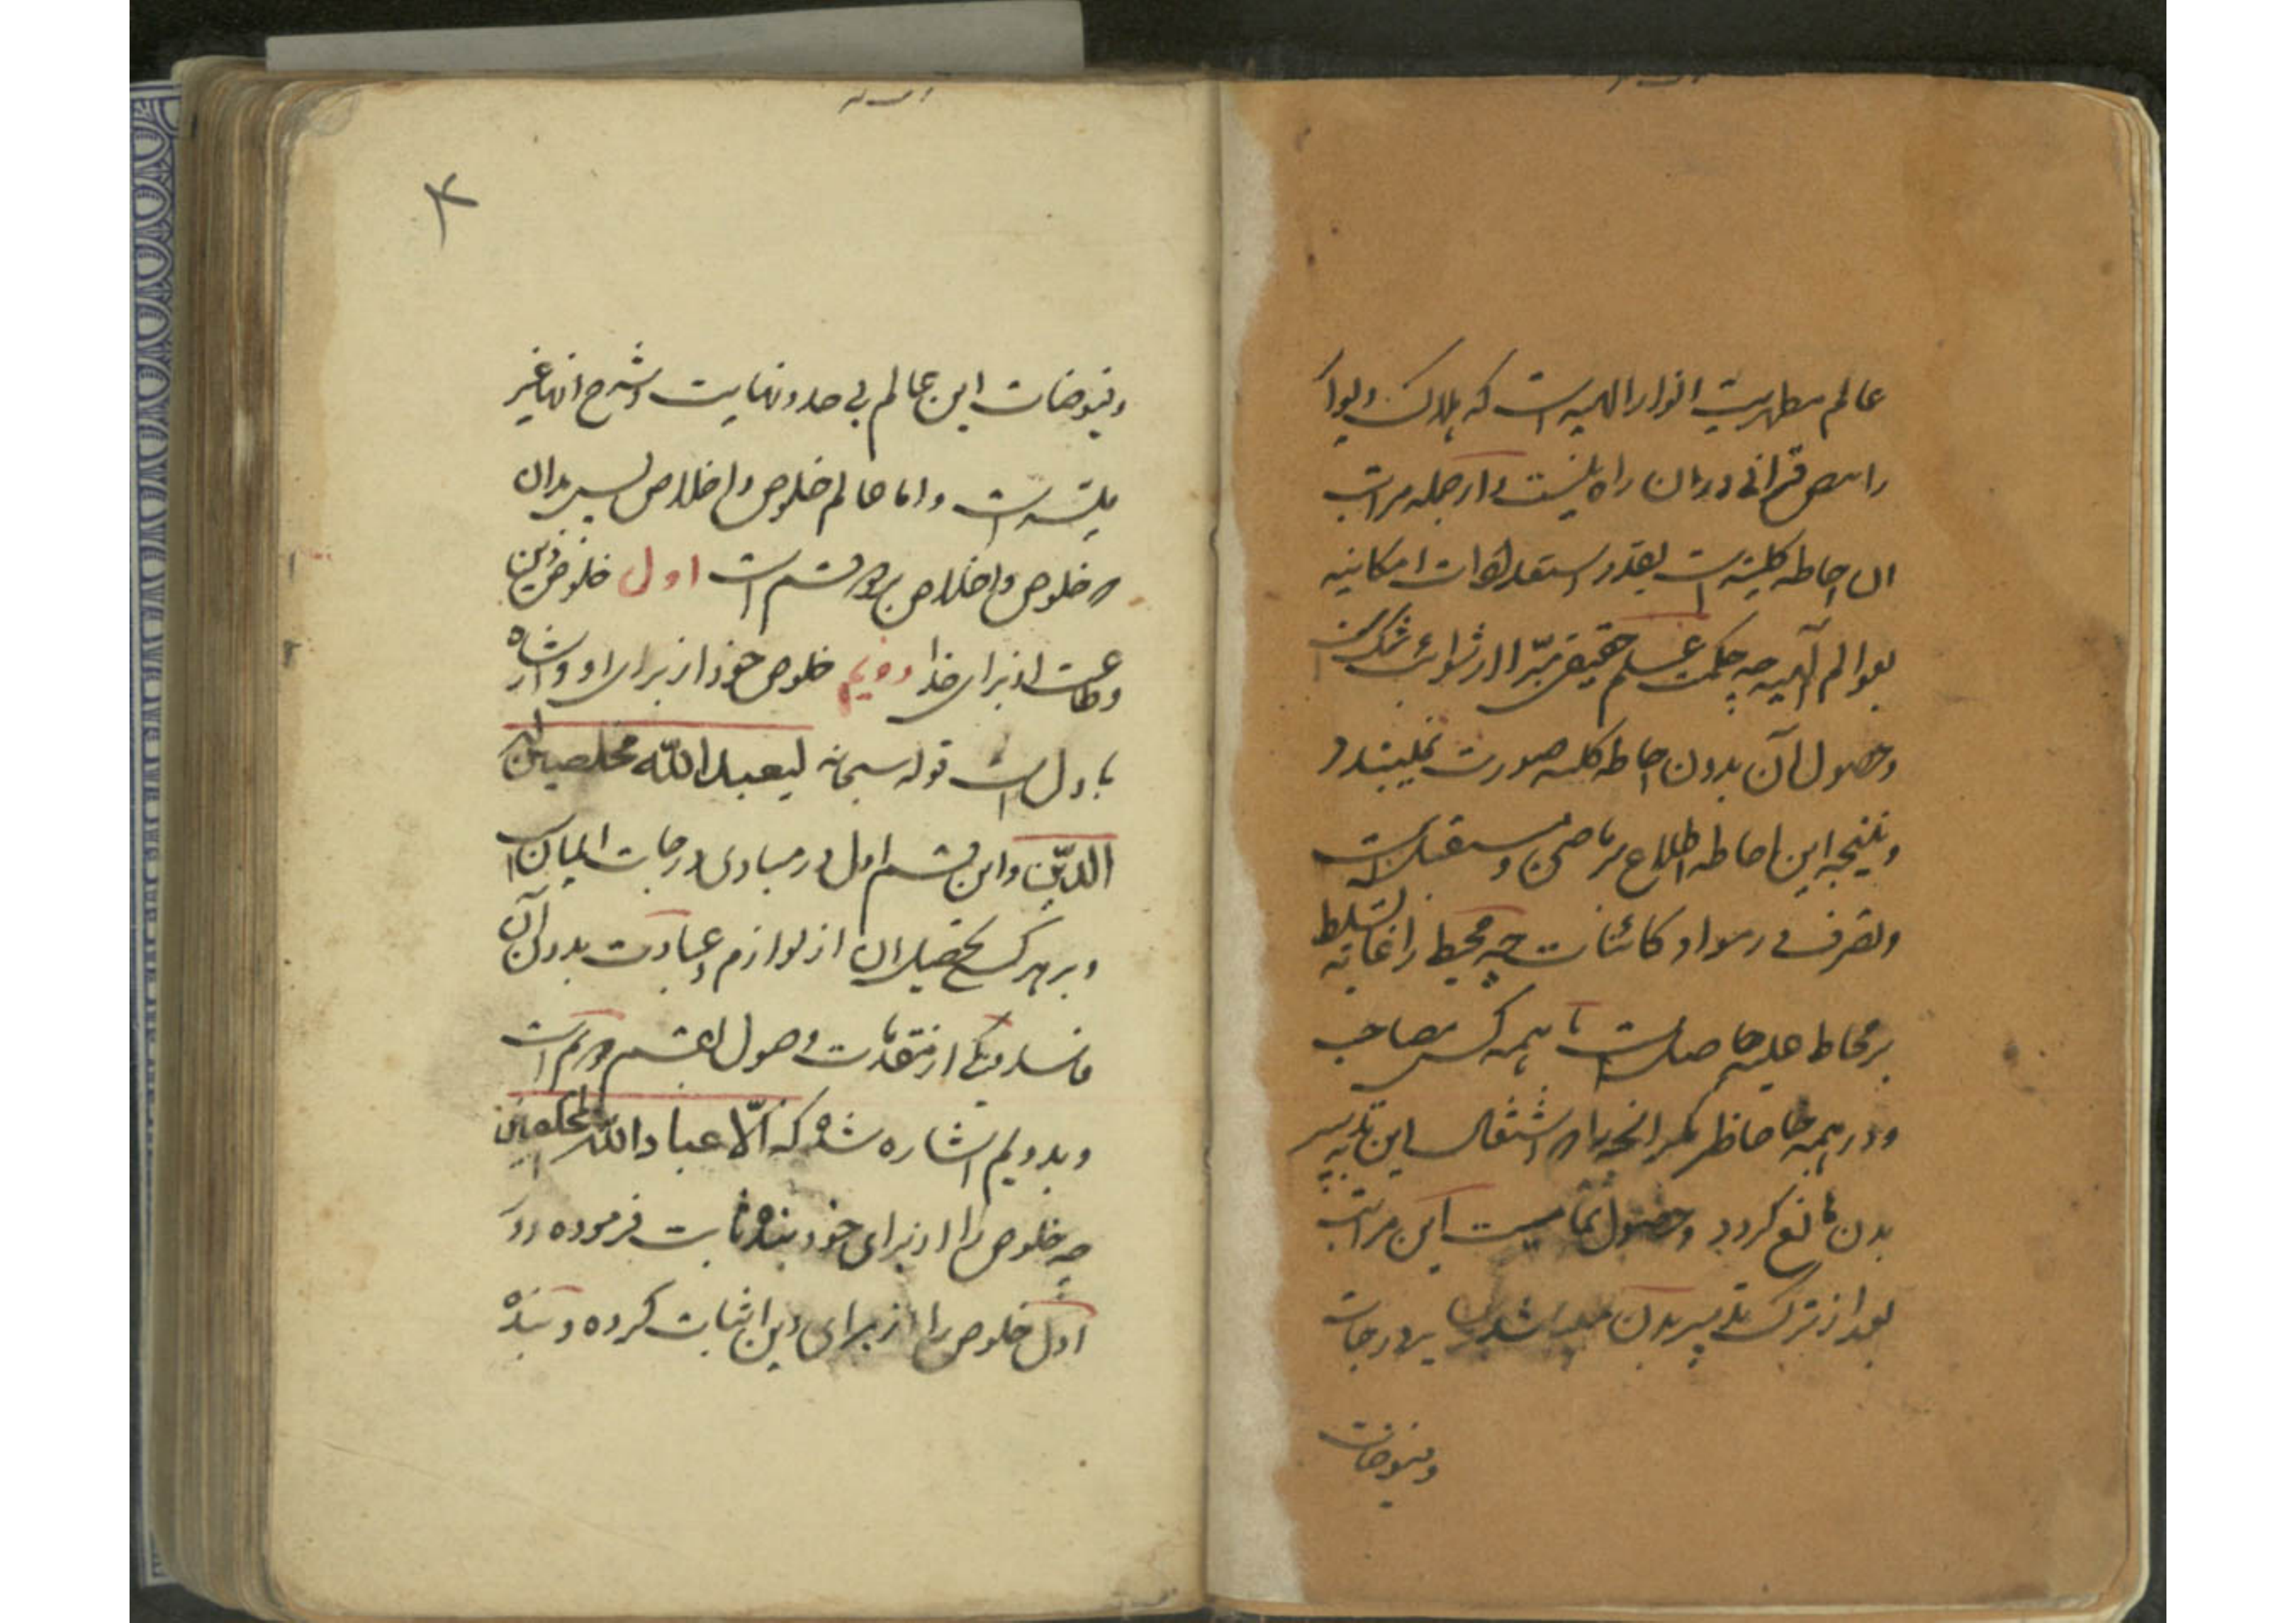 عالم مظهریت انوار الهیه است که هلاک و بوار
را بنص قرآنی در ان راه نیست و از جمله مراتب
ان احاطه کلیه است بقدر استعدادات امکانیه
بعوالم آلهیه چه حکمت علم حقیقی مبرّا از شوائب شک است
و حصول آن بدون احاطه کلیه صورت نمیبندد و
و نتیجه این احاطه اطلاع بر ماضی و مستقبل است
و تصرف در مواد کائنات چه محیط را غایه تسلط
بر محاط علیه حاصل است تا با همه کس مصاحب
و در همه جا حاضر مگر انچه را اشتغال این تدبیر
بدن مانع گردد و حصول تمامیت این مراتب
بعد از ترک تدبیر بدن درجات
و فیوضات
و فیوضات این عالم بی حد و نهایت و شرح انها غیر
میسر است و اما عالم خلوص و اخلاص پس بدان
که خلوص و اخلاص بر دو قسم است اول خلوص دین
و طاعت از برای خدا دویم خلوص خود از برای او و اشاره
باول است قوله سبحانه لیعبدالله مخلصین له
الدّین و این قسم اول در مبادی درجات ایمان است
و بر هر کس تحصیل ان از لوازم و عبادت بدون آن
فاسد و یکی از مقدمات وصول بقسم دویم است
و بدویم اشاره شده که الّا عبادالله المخلصین
چه خلوص را از برای خود بنده ثابت فرموده و در
اول خلوص را از برای دین اثبات کرده و بنده